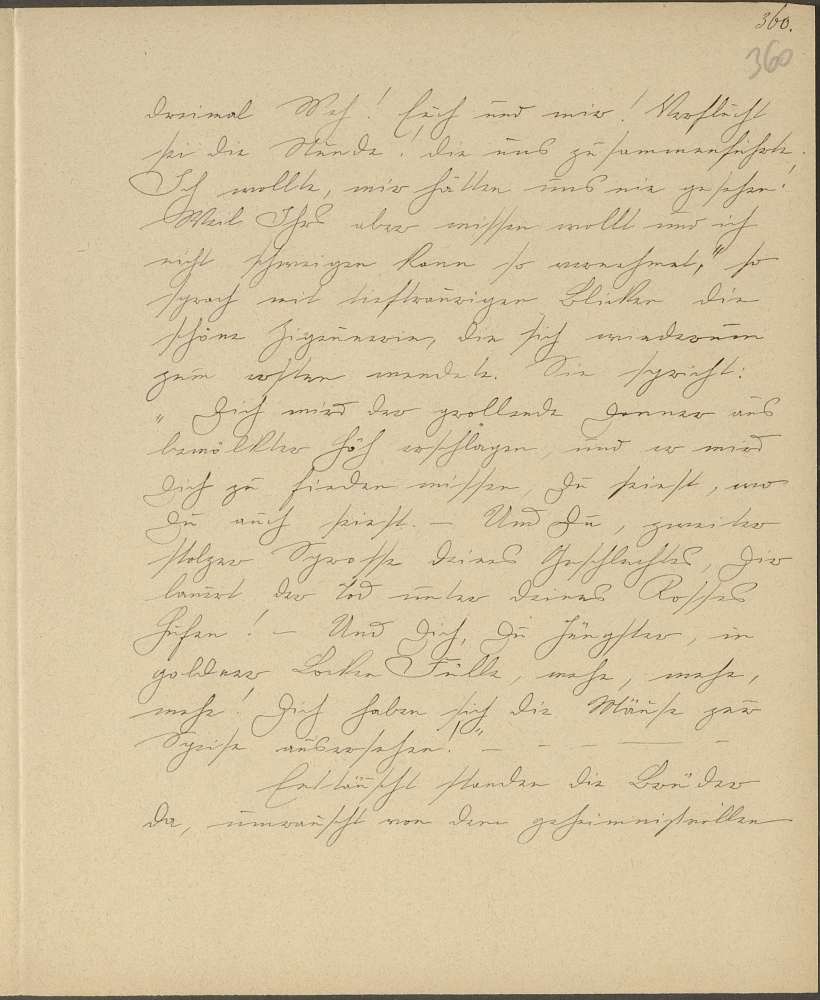 360.
360
dreimal Weh! Euch und mir! Verflucht
sei die Stunde! die uns zusammenführte.
Ich wollte, wir hätten uns nie gesehen!
Weil Ihrs aber wissen wollt und ich
nicht schweigen kann so vernehmet," so
sprach mit tieftraurigen Blicken die
schöne Zigeunerin, die sich wiederum
zum ersten wendete. Sie spricht:
" Dich wird der grollende Donner aus
bewölkter Höh erschlagen, und er wird
Dich zu finden wissen, Du seiest, wo
Du auch seiest. – Und Du, zweiter
stolzer Sprosse deines Geschlechtes, Dir
lauert der Tod unter deines Rosses
Hufen! – Und Dich, Du Jüngster, in
goldner Locken Fülle, wehe, wehe,
wehe! Dich haben sich die Mäuse zur
Speise ausersehen!" – – – — –
Enttäuscht standen die Brüder
da, umrauscht von dem geheimnisvollen